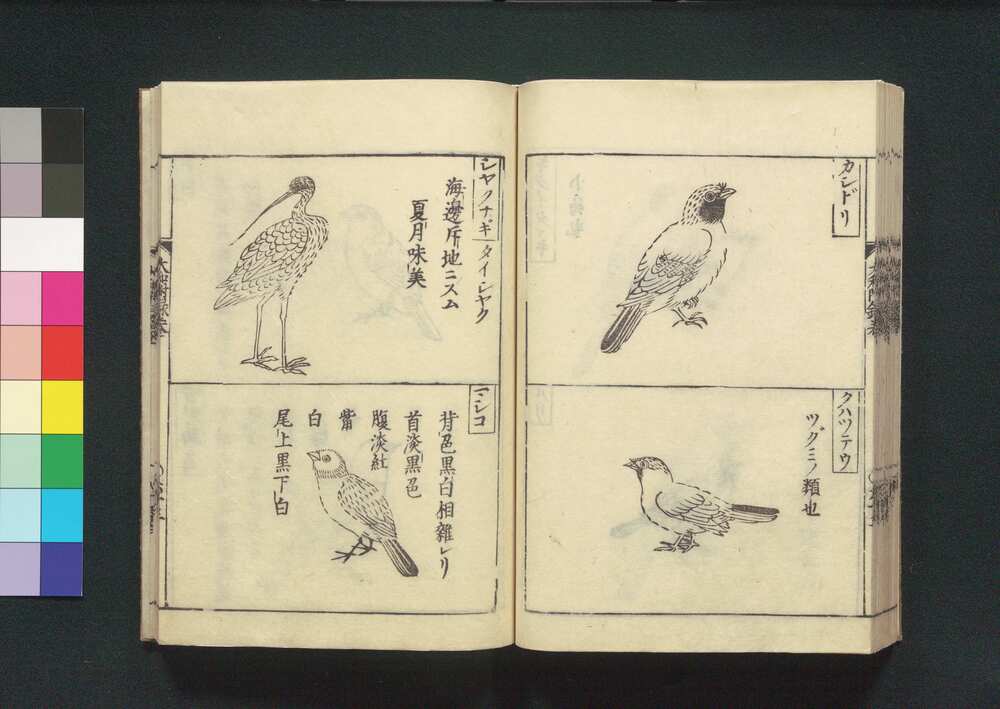 カシドリ
クハツテウ
ツグミノ類也
シヤクナギ
タイシヤク
海邊斥地ニスム
夏月味美
マシコ
背色黒白相雜レリ
首淡黒色
腹淡紅
觜
白
尾上黒下白